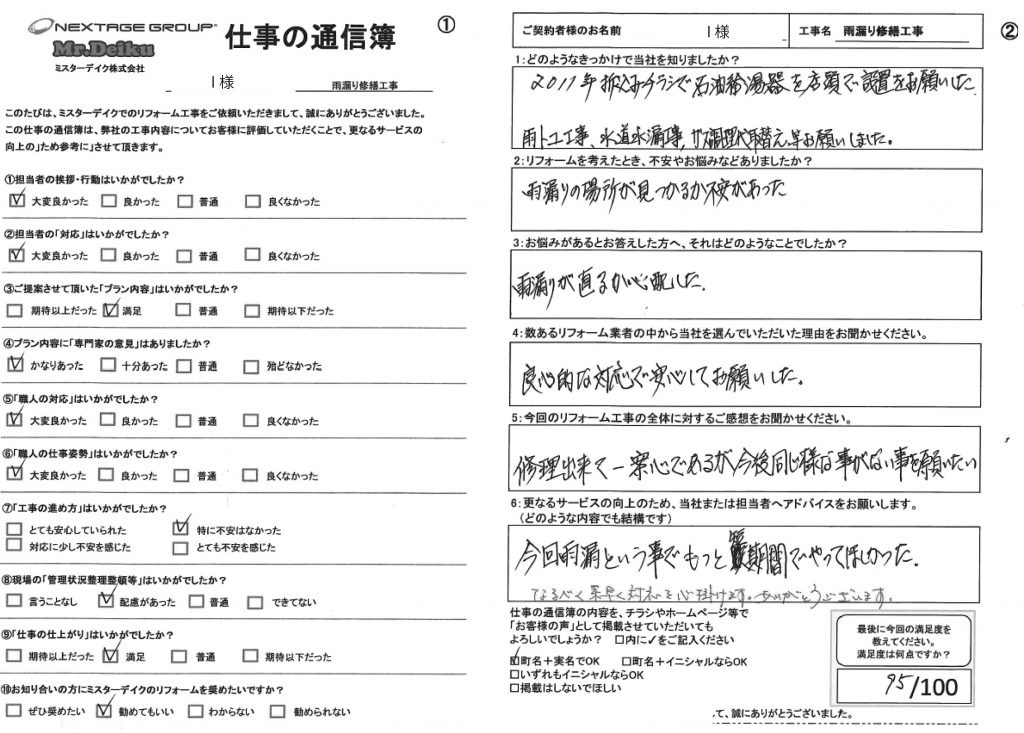 NEXTAGE GROUP®
Mr.Deiku
ミスターデイク株式会社
仕事の通信簿
①
I 様
雨漏り修繕工事
このたびは、ミスターデイクでのリフォーム工事をご依頼いただきまして、誠にありがとうございました。
この仕事の通信簿は、弊社の工事内容についてお客様に評価していただくことで、更なるサービスの
向上の」ため参考に」させて頂きます。
①担当者の挨拶・行動はいかがでしたか?
☑ 大変良かった □ 良かった □ 普通 □ 良くなかった
②担当者の「対応」はいかがでしたか?
☑ 大変良かった □ 良かった □ 普通 □ 良くなかった
③ご提案させて頂いた「プラン内容」はいかがでしたか?
□ 期待以上だった ☑ 満足 □ 普通 □ 期待以下だった
④プラン内容に「専門家の意見」はありましたか?
☑ かなりあった □ 十分あった □ 普通 □ 殆どなかった
⑤「職人の対応」はいかがでしたか?
☑ 大変良かった □ 良かった □ 普通 □ 良くなかった
⑥「職人の仕事姿勢」はいかがでしたか?
☑ 大変良かった □ 良かった □ 普通 □ 良くなかった
⑦「工事の進め方」はいかがでしたか?
□ とても安心していられた ☑ 特に不安はなかった
□ 対応に少し不安を感じた □ とても不安を感じた
⑧現場の「管理状況整理整頓等」はいかがでしたか?
□ 言うことなし ☑ 配慮があった □ 普通 □ できてない
⑨「仕事の仕上がり」はいかがでしたか?
□ 期待以上だった ☑ 満足 □ 普通 □ 期待以下だった
⑩お知り合いの方にミスターデイクのリフォームを奨めたいですか?
□ ぜひ奨めたい ☑ 勧めてもいい □ わからない □ 勧められない
ご契約者様のお名前 I 様 工事名 雨漏り修繕工事
②
1:どのようなきっかけで当社を知りましたか?
2011年折込みチラシで石油給湯器を店頭で設置をお願いした
雨トユ工事、水道水漏工事、ガス調理代取替え、等お願いしました。
2:リフォームを考えたとき、不安やお悩みなどありましたか?
雨漏りの場所が見つかるか不安があった
3:お悩みがあるとお答えした方へ、それはどのようなことでしたか?
雨漏りが直るか心配した.
4:数あるリフォーム業者の中から当社を選んでいただいた理由をお聞かせください。
良心的な対応で安心してお願いした.
5:今回のリフォーム工事の全体に対するご感想をお聞かせください。
修理出来て一安心であるが今後同じ様な事がない事を願いたい
6:更なるサービスの向上のため、当社または担当者へアドバイスをお願いします。
(どのような内容でも結構です)
今回雨漏という事でもっと短期間でやってほしかった.
なるべく素早く対応を心掛けます。ありがとうございます.
仕事の通信簿の内容を、チラシやホームページ等で
「お客様の声」として掲載させていただいても
よろしいでしょうか? □内に✓をご記入ください
☑町名+実名でOK □町名+イニシャルならOK
□いずれもイニシャルならOK
□掲載はしないでほしい
最後に今回の満足度を
教えてください。
満足度は何点ですか?
95/100
て、誠にありがとうございました。